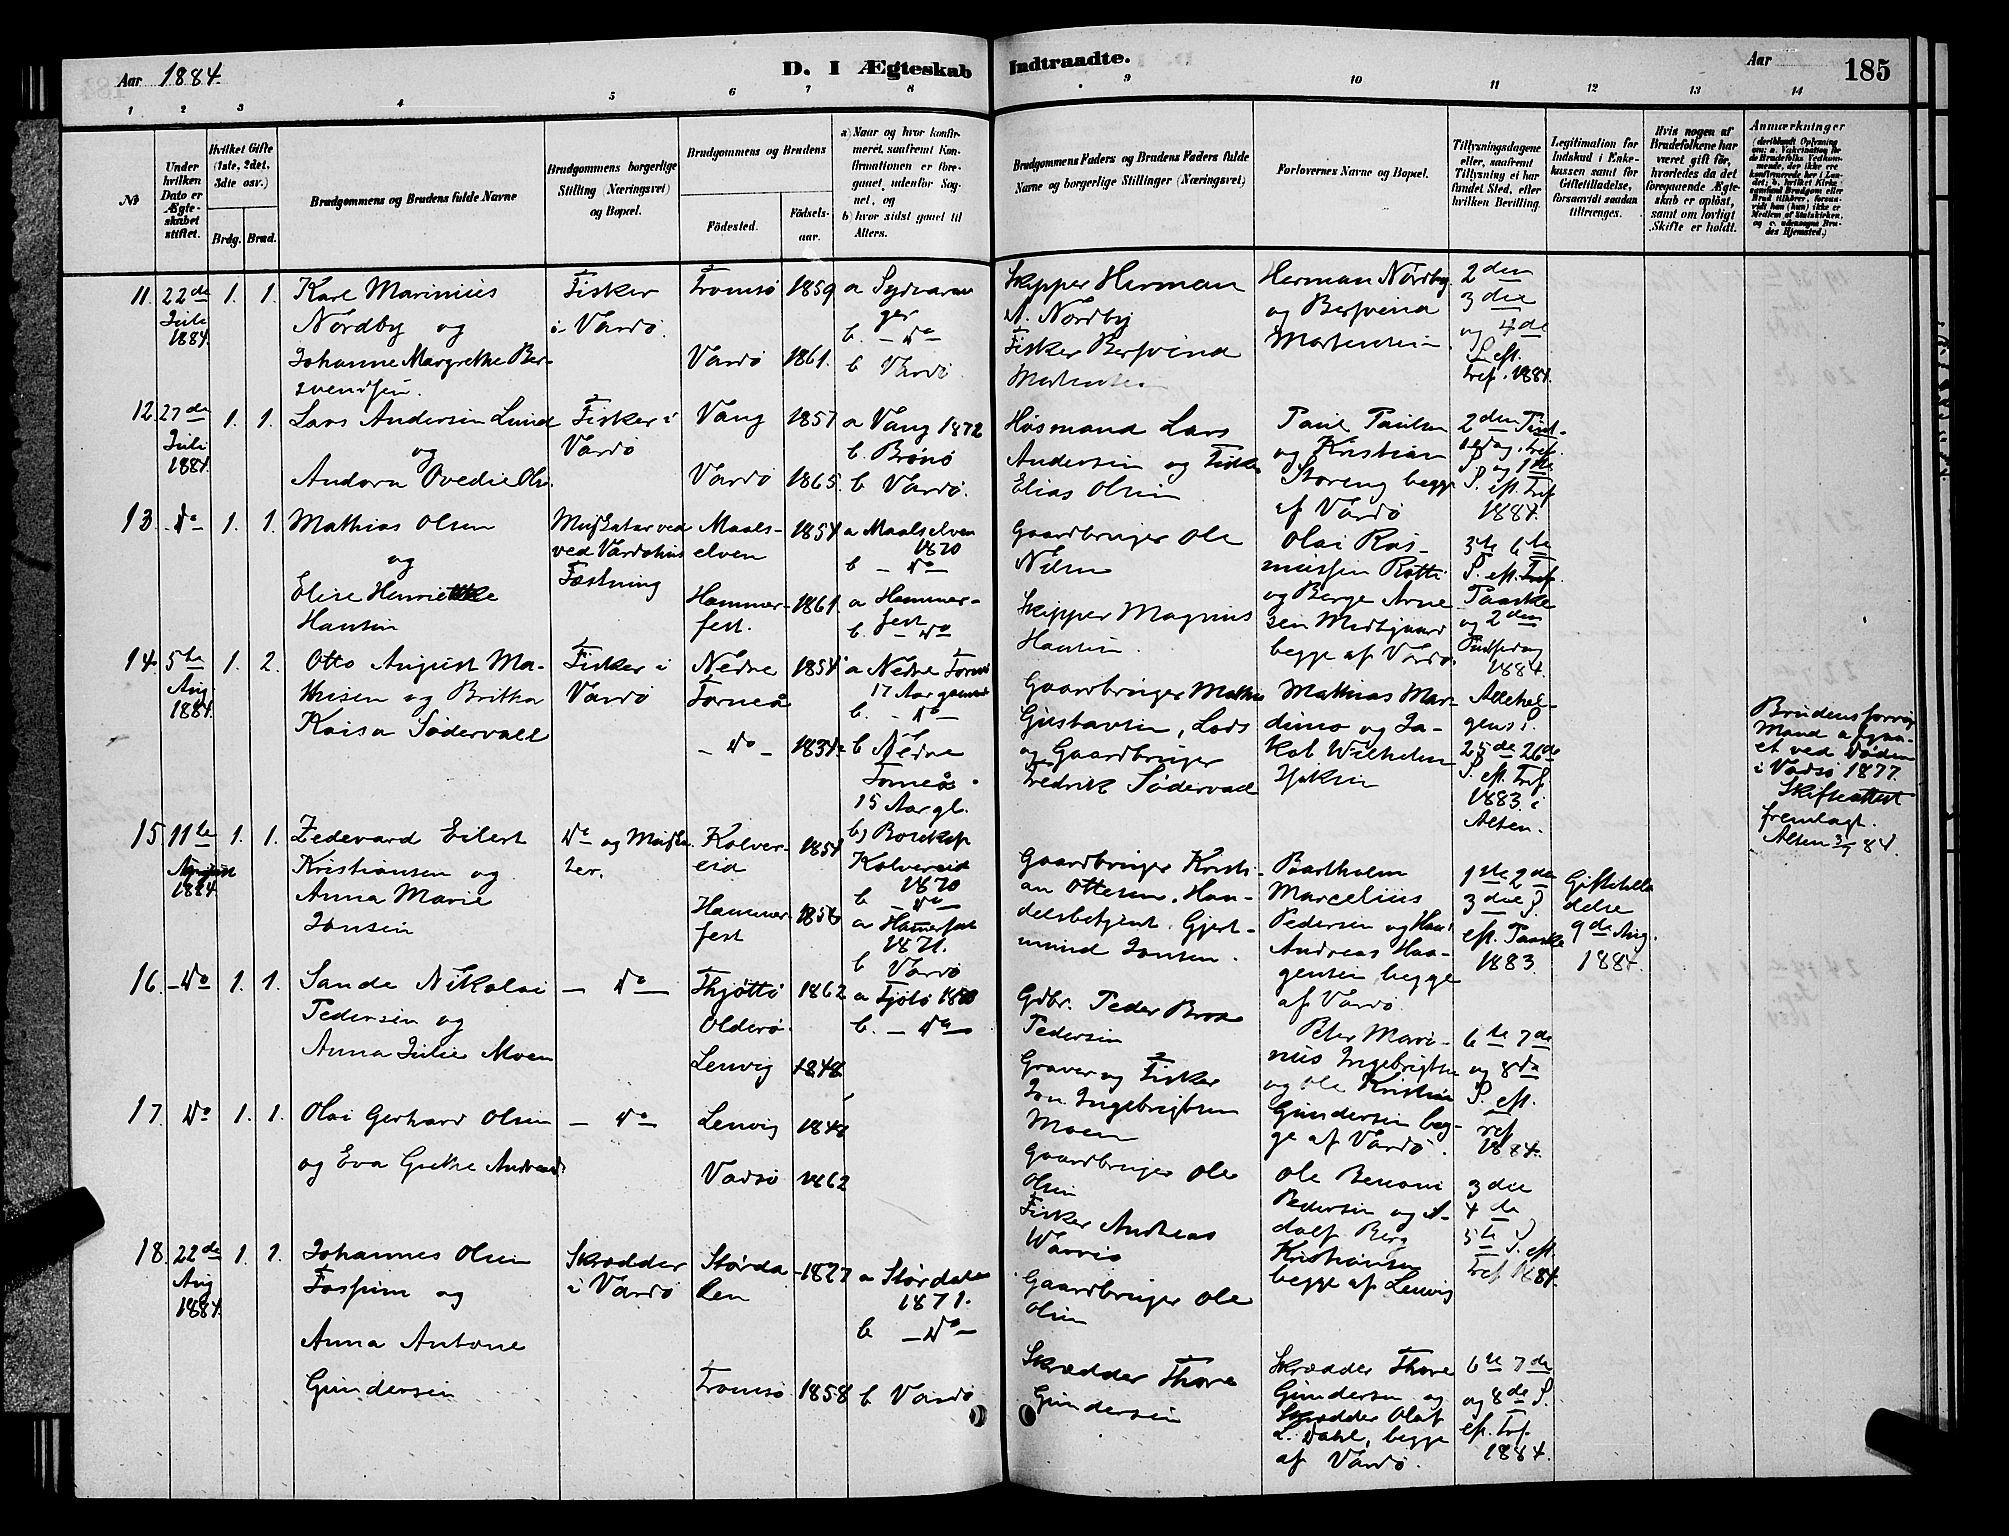 Aar 1884.
D. I Ægteskab Indtraadte.
Aar
185
1 2 3 4 5 6 7 8 9 10 11 12 13 14
№
Under hvilken Dato er Ægteskabet stiftet.
Hvilket Gifte (1ste, 2det, 3die osv.)
Brdg. Brud.
Brudgommens og Brudens fulde Navne
Brudgommens borgerlige Stilling (Næringsvei) og Bopæl.
Brudgommens og Brudens
Födested.
Födselsaar.
a) Naar og hvor konfirmeret, saafremt Konfirmationen er foregaaet udenfor Sognet, og
b) hvor sidst gaaet til Alters.
Brudgommens Faders og Brudens Faders fulde Navne og borgerlige Stillinger (Næringsvei)
Forlovernes Navne og Bopæl.
Tillysningsdagene eller, saafremt Tillysning ei har fundet Sted, efter hvilken Bevilling.
Legitimation for Indskud i Enkekassen samt for Giftetilladelse, forsaavidt saadan tiltrænges.
Hvis nogen af Brudefolkene har været gift för, hvorledes da det foregaaende Ægteskab er oplöst, samt om lovligt Skifte er holdt.
Anmærkninger
11. 22de Juli 1884. 1. 1.
Karl Marinius
Nordby og
Johanne Margrethe Bersvendsen.
Fisker
i Vardö.
Tromsö 1859
Vardö 1861.
a Sydvaranger
b. - Do
b Vardö.
Skipper Herman
A. Nordby
Fisker Bersvend
Mortensen
Herman Nordby
og Bersvend
Mortensen
2den
3die
og 4de
S. eft.
Tref. 1884.
12. 27de Juli 1884. 1. 1.
Lars Andersen Lund
og
Andora Ovedie Ols.
Fisker i
Vardö
Vang 1857
Vardö 1865.
a Vang 1872
b. Brönö
b Vardö.
Husmand Lars
Andersen og Fisker
Elias Olsen
Paul Paulsen
og Kristian
Storeng begge
af Vardö
2den
S. og 1ste
S. eft. Tref
1884.
13. - Do 1. 1.
Mathias Olsen
og
Elise Henriette
Hansen
ved Vardöhus
Fæstning
Maalselven 1854
Hammerfest. 1861
a Maalselven
1870
b - Do -
a Hammerfest
b. - Do
Gaardbruger Ole
Nilsen
Skipper Magnus
Hansen.
Olai Rasmussen
og Berge Arnesen
begge af Vardö.
3die 6te
S. eft. Tref.
Paaske
og 2den
Pintsedag
1884.
14. 5te Aug. 1884. 1. 2.
Otto August Mathisen og Britha
Kaisa Södervall
Fisker i
Vardö
Nedre
Torneå 1854
- Do - 1834.
a Nedre Torneå
17 Aar gammel
b. - Do -
b Nedre
Torneå.
15 Aar gl.
Gaardbruger Mathis
Gustavsen, Lods
og Gaardbruger
Fredrik Södervall
Mathias Mardimo og Jakob Wilhelm
Allehelgens S.
25de 26de
S. eft. Tref.
1883 i
Alten.
Brudens forrige
Mand afgaaet ved Döden
i Vadsö 1877.
Skifteattest
fremlagt.
Alten 3/7 84.
15. 11te August 1884. 1. 1.
Zedevard Eilert
Kristiansen og
Anna Marie
Jonsen
Do og
Kolvereid 1854
Hammerfest 1856
Kolvereid
1870
b - Do
a Hamerfest
1871.
b Vardö
Gaardbruger Kristian Ottesen. Handelsbetjent Gjertmund Jonsen.
Bartholm
Marcelius
Pedersen og Hans
Andreas Haagensen begge
af Vardö.
1ste 2den
3die S.
eft. Paaske
1883
Giftetilladelse
9de Aug.
1884.
16. - Do 1. 1.
Sande Nikolai
Pedersen og
Anna Julie Moen
- Do -
Thjöttö 1862
Olderö.
Lenvig 1848
a Tjötö 18
b. - Do
Gdbr. Peder
Pedersen
Graver og Fisker
Jon Ingebrigtsen
Moen
Peter Marinius Ingebrigtsen
og Ole Kristian
Gundersen begge af Vardö.
6te 7de
og 8de
S. eft.
ref.
1884.
17. Do 1. 1.
Olai Gerhard Olsen
og Eva Grethe
- Do -
Lenvig 1848
Vadsö 1862
Gaardbruger Ole
Olsen
Fisker Andreas
Ole Benoni
Pedersen og Adolf Berg
Kristiansen
begge af Lenvig
3die
4de
5te S. eft.
Tref. 1884.
18. 22de Aug 1884. 1. 1.
Johannes Olsen
Fossum og
Anna Antone
Gundersen
Skrædder
i Vardö
Stördalen 1827
Tromsö 1858
a Stördalen
1871.
b - Do -
b Vardö
Gaardbruger Ole
Olsen
Skrædder Thore
Gundersen
Skrædder Thore
Gundersen og
Skrædder Olaf
L. Dahl, begge
af Vardö.
6te 7de
og 8de S.
eft. Tref.
1884.